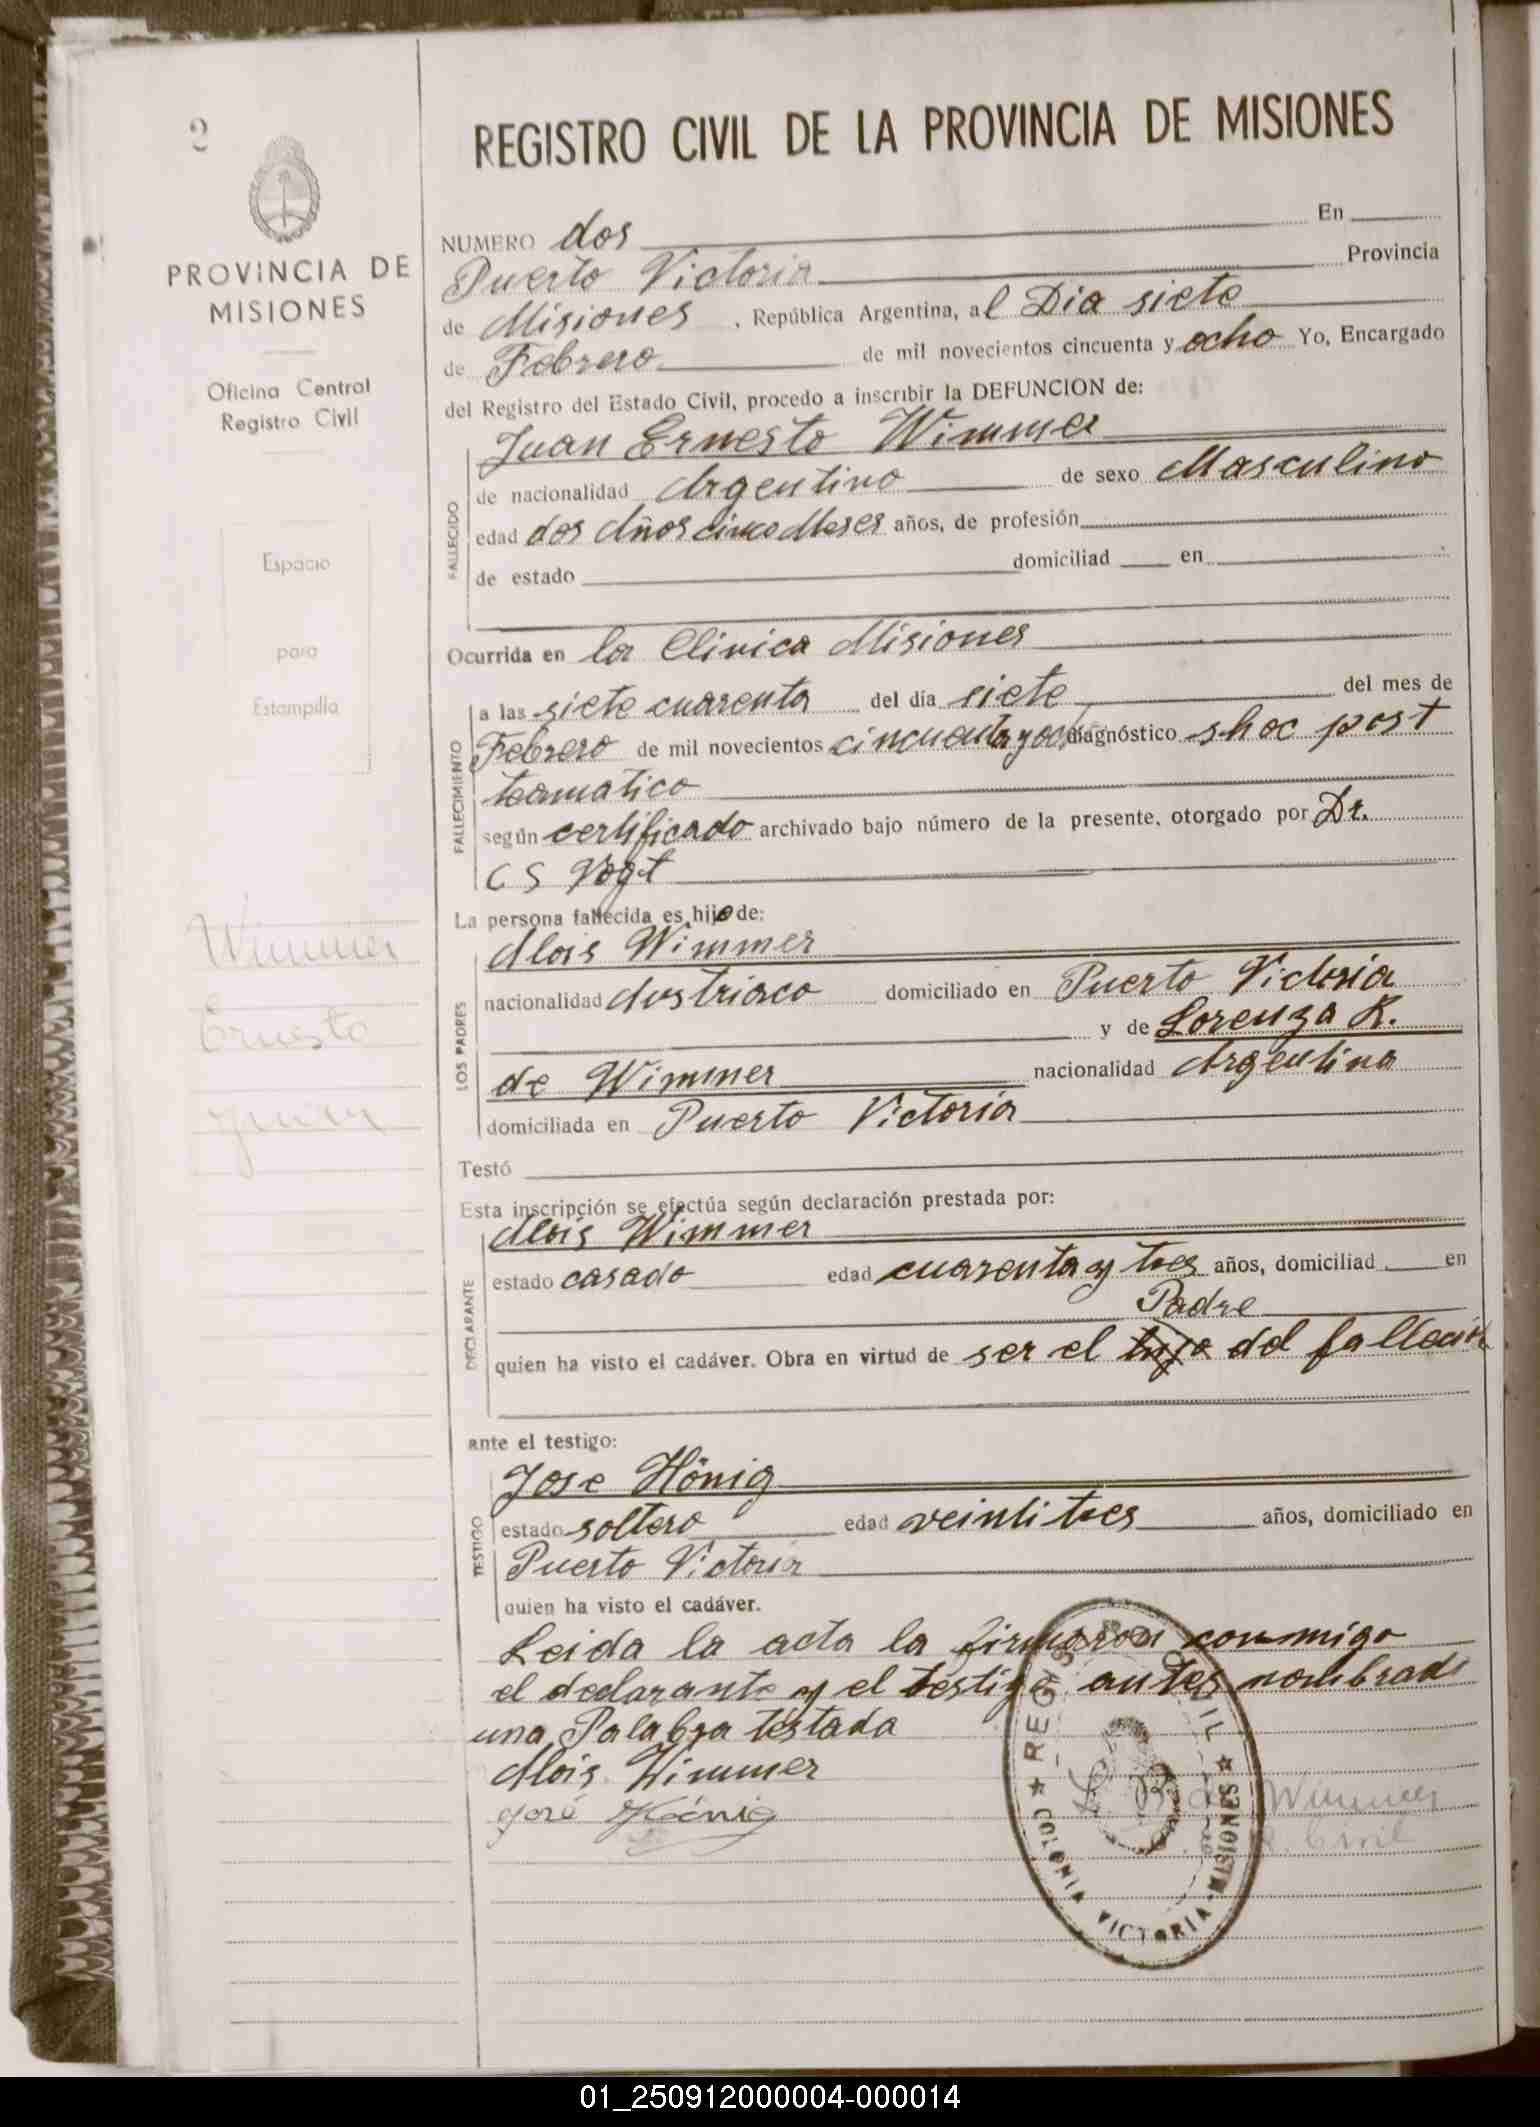 2
PROVINCIA DE
MISIONES
Oficina Central
Registro Civil
Espacio
para
Estampilla
Wimmer
Ernesto
Juan
REGISTRO CIVIL DE LA PROVINCIA DE MISIONES
NUMERO dos En
Puerto Victoria Provincia
de Misiones , República Argentina, al Dia siete
de Febrero de mil novecientos cincuenta y ocho Yo, Encargado
del Registro del Estado Civil, procedo a inscribir la DEFUNCION de:
Juan Ernesto Wimmer
FALLECIDO
de nacionalidad Argentino de sexo Masculino
edad dos Años cinco Meses años, de profesión
de estado domiciliad en
Ocurrida en la Clinica Misiones
FALLECIMIENTO
a las siete cuarenta del día siete del mes de
Febrero de mil novecientos cincuenta y ocho diagnóstico shoc post
traumatico
según certificado archivado bajo número de la presente, otorgado por Dr.
C S Vogt
La persona fallecida es hijo de:
LOS PADRES
Alois Wimmer
nacionalidad Austriaco domiciliado en Puerto Victoria
y de Lorenza R.
de Wimmer nacionalidad Argentina
domiciliada en Puerto Victoria
Testó
Esta inscripción se efectúa según declaración prestada por:
DECLARANTE
Alois Wimmer
estado casado edad cuarenta y tres años, domiciliad en
Padre
quien ha visto el cadáver. Obra en virtud de ser el hijo del fallecido
ante el testigo:
TESTIGO
Jose Hönig
estado soltero edad veintitres años, domiciliado en
Puerto Victoria
quien ha visto el cadáver.
Leida la acta la firmaron conmigo
el declarante y el testigo antes nombrado
una Palabra testada
Alois Wimmer
José Hönig
Wimmer
R. Civil
REGISTRO CIVIL
COLONIA VICTORIA - MISIONES
01_250912000004-000014